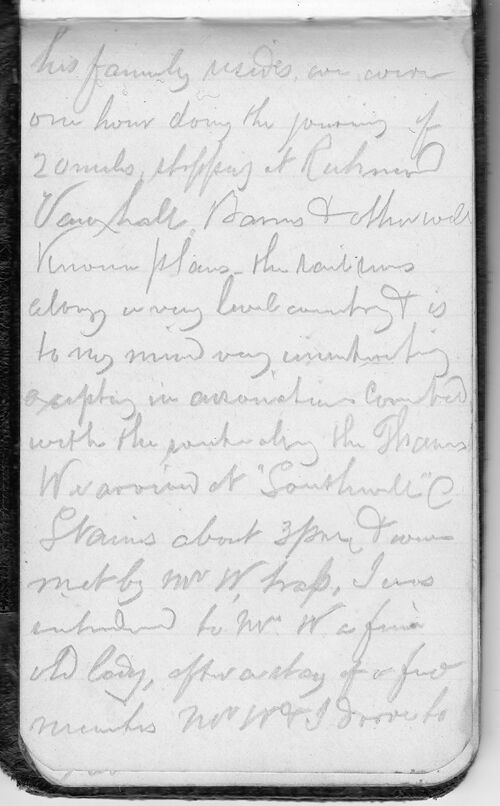 his family resides, we were
one hour doing the journey of
20 miles, stopping at Richmond
Vauxhall, Barns & other well
known places - the rail runs
along a very level country & is
to my mind very uninteresting
excepting in associations connected
with the route along the Thames
We arrived at "Southwell" 
Stains about 3 pm & were
met by Mr W, I was
introduced to Mrs W a fine
old lady, after a stay of a few
minutes Mr W & I drove to